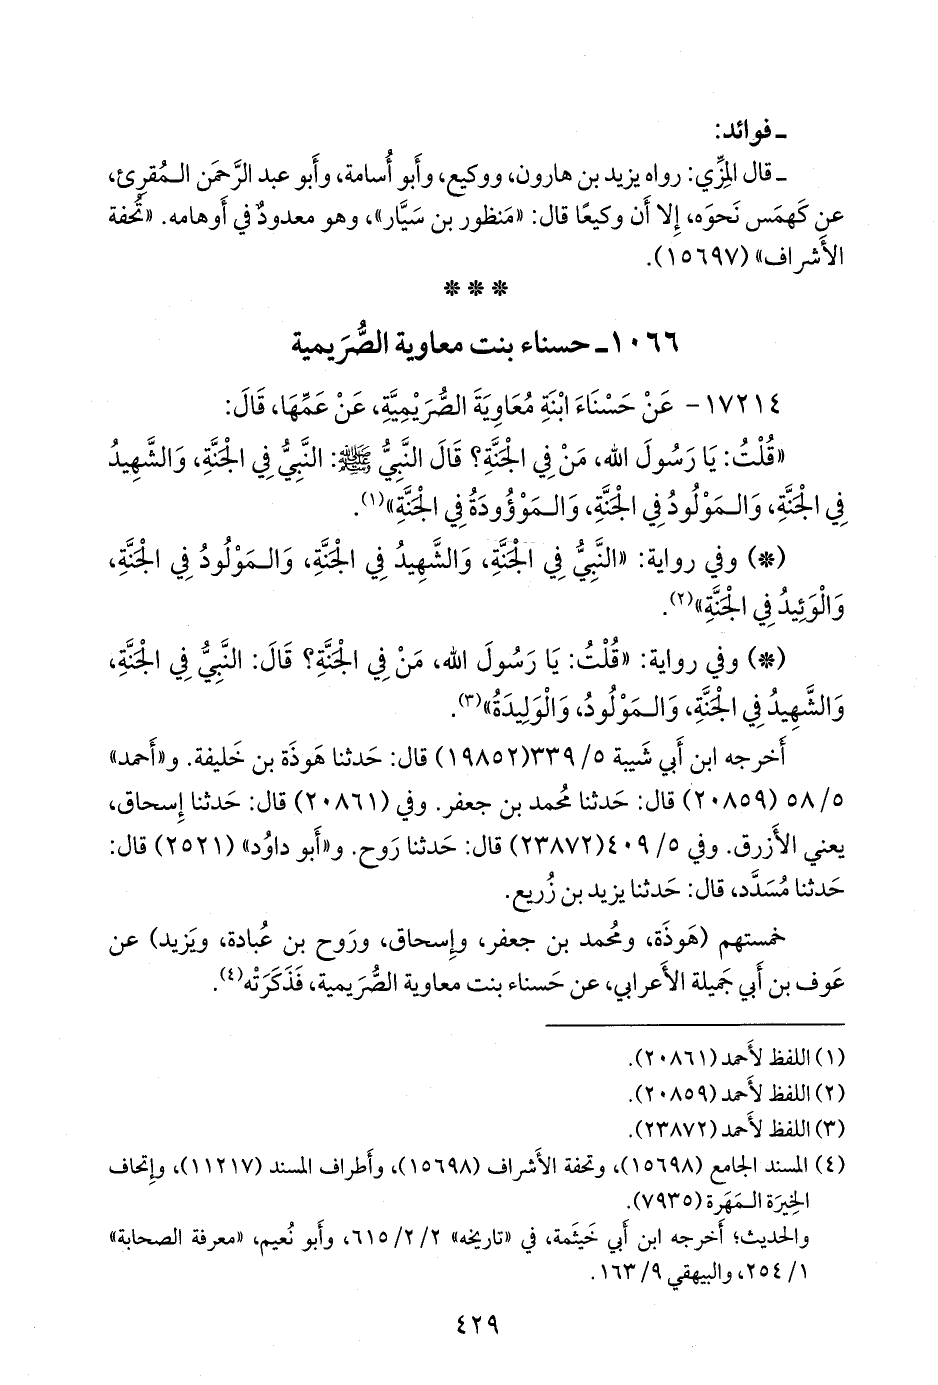 ـ فوائد:
ـ قال المِزِّي: رواه يزيد بن هارون، ووكيع، وأَبو أُسامة، وأَبو عبد الرَّحمَن الـمُقرِئ،
عن كَهمَس نَحوَه، إِلا أَن وكيعًا قال: «مَنظور بن سَيَّار»، وهو معدودٌ في أَوهامه. «تُحفة
الأَشراف» (١٥٦٩٧).
* * *
١٠٦٦ـ حسناء بنت معاوية الصُّرَيمية
١٧٢١٤- عَنْ حَسْنَاءَ ابْنَةِ مُعَاوِيَةَ الصُّرَيْمِيَّةِ، عَنْ عَمِّهَا، قَالَ:
«قُلْتُ: يَا رَسُولَ الله، مَنْ فِي الْجَنَّةِ؟ قَالَ النَّبِيُّ ﷺ: النَّبِيُّ فِي الْجَنَّةِ، وَالشَّهِيدُ
فِي الْجَنَّةِ، وَالـمَوْلُودُ فِي الْجَنَّةِ، وَالـمَوْؤُودَةُ فِي الْجَنَّةِ»(١).
(*) وفي رواية: «النَّبِيُّ فِي الْجَنَّةِ، وَالشَّهِيدُ فِي الْجَنَّةِ، وَالـمَوْلُودُ فِي الْجَنَّةِ،
وَالْوَئِيدُ فِي الْجَنَّةِ»(٢).
(*) وفي رواية: «قُلْتُ: يَا رَسُولَ الله، مَنْ فِي الْجَنَّةِ؟ قَالَ: النَّبِيُّ فِي الْجَنَّةِ،
وَالشَّهِيدُ فِي الْجَنَّةِ، وَالـمَوْلُودُ، وَالْوَلِيدَةُ»(٣).
أَخرجه ابن أَبي شَيبة ٥/ ٣٣٩(١٩٨٥٢) قال: حَدثنا هَوذَة بن خَليفة. و«أَحمد»
٥/ ٥٨ (٢٠٨٥٩) قال: حَدثنا مُحمد بن جعفر. وفي (٢٠٨٦١) قال: حَدثنا إِسحاق،
يعني الأَزرق. وفي ٥/ ٤٠٩(٢٣٨٧٢) قال: حَدثنا رَوح. و«أَبو داوُد» (٢٥٢١) قال:
حَدثنا مُسَدَّد، قال: حَدثنا يزيد بن زُريع.
خمستهم (هَوذَة، ومُحمد بن جعفر، وإِسحاق، ورَوح بن عُبادة، ويَزيد) عن
عَوف بن أَبي جَميلة الأَعرابي، عن حَسناء بنت معاوية الصُّرَيمية، فَذَكَرَتْه(٤).
(١) اللفظ لأَحمد (٢٠٨٦١).
(٢) اللفظ لأَحمد (٢٠٨٥٩).
(٣) اللفظ لأَحمد (٢٣٨٧٢).
(٤) المسند الجامع (١٥٦٩٨)، وتحفة الأَشراف (١٥٦٩٨)، وأَطراف المسند (١١٢١٧)، وإِتحاف
الخِيرَة الـمَهَرة (٧٩٣٥).
والحديث؛ أَخرجه ابن أَبي خَيثَمة، في «تاريخه» ٢/ ٢/ ٦١٥، وأَبو نُعيم، «معرفة الصحابة»
١/ ٢٥٤، والبيهقي ٩/ ١٦٣.
٤٢٩